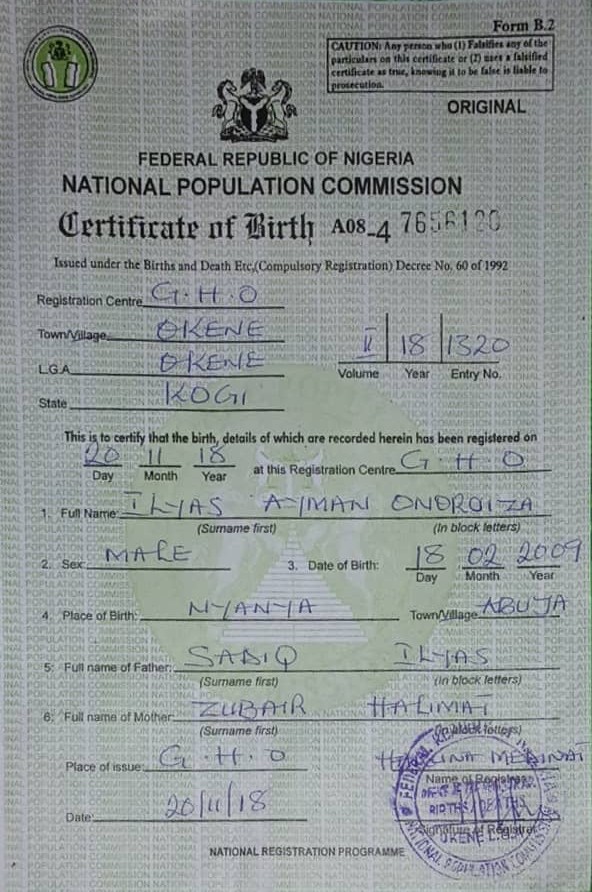 Form B.2
CAUTION: Any person who (1) Falsifies any of the
particulars on this certificate or (2) uses a falsified
certificate as true, knowing it to be false is liable to
prosecution.
ORIGINAL
FEDERAL REPUBLIC OF NIGERIA
NATIONAL POPULATION COMMISSION
Certificate of Birth A08-4 7656120
Issued under the Births and Death Etc,(Compulsory Registration) Decree No. 60 of 1992
Registration Centre G.H.O
Town/Village OKENE
L.G.A. OKENE
II 18 1320
Volume Year Entry No.
State KOGI
This is to certify that the birth, details of which are recorded herein has been registered on
20 11 18 at this Registration Centre G.H.O
Day Month Year
1. Full Name: ILYAS AYMAN ONOROIZA
(Surname first) (In block letters)
2. Sex: MALE 3. Date of Birth: 18 02 2009
Day Month Year
4. Place of Birth: NYANYA Town/Village ABUJA
5: Full name of Father: SADIQ ILYAS
(Surname first) (In block letters)
6: Full name of Mother: ZUBAIR HALIMAT
(Surname first) (In block letters)
Place of issue: G.H.O MEDINAT
Name of Registrar
Date: 20/11/18
Signature of Registrar
BIRTHS/DEATHS
OKENE L.G.A
NATIONAL POPULATION COMMISSION
NATIONAL REGISTRATION PROGRAMME